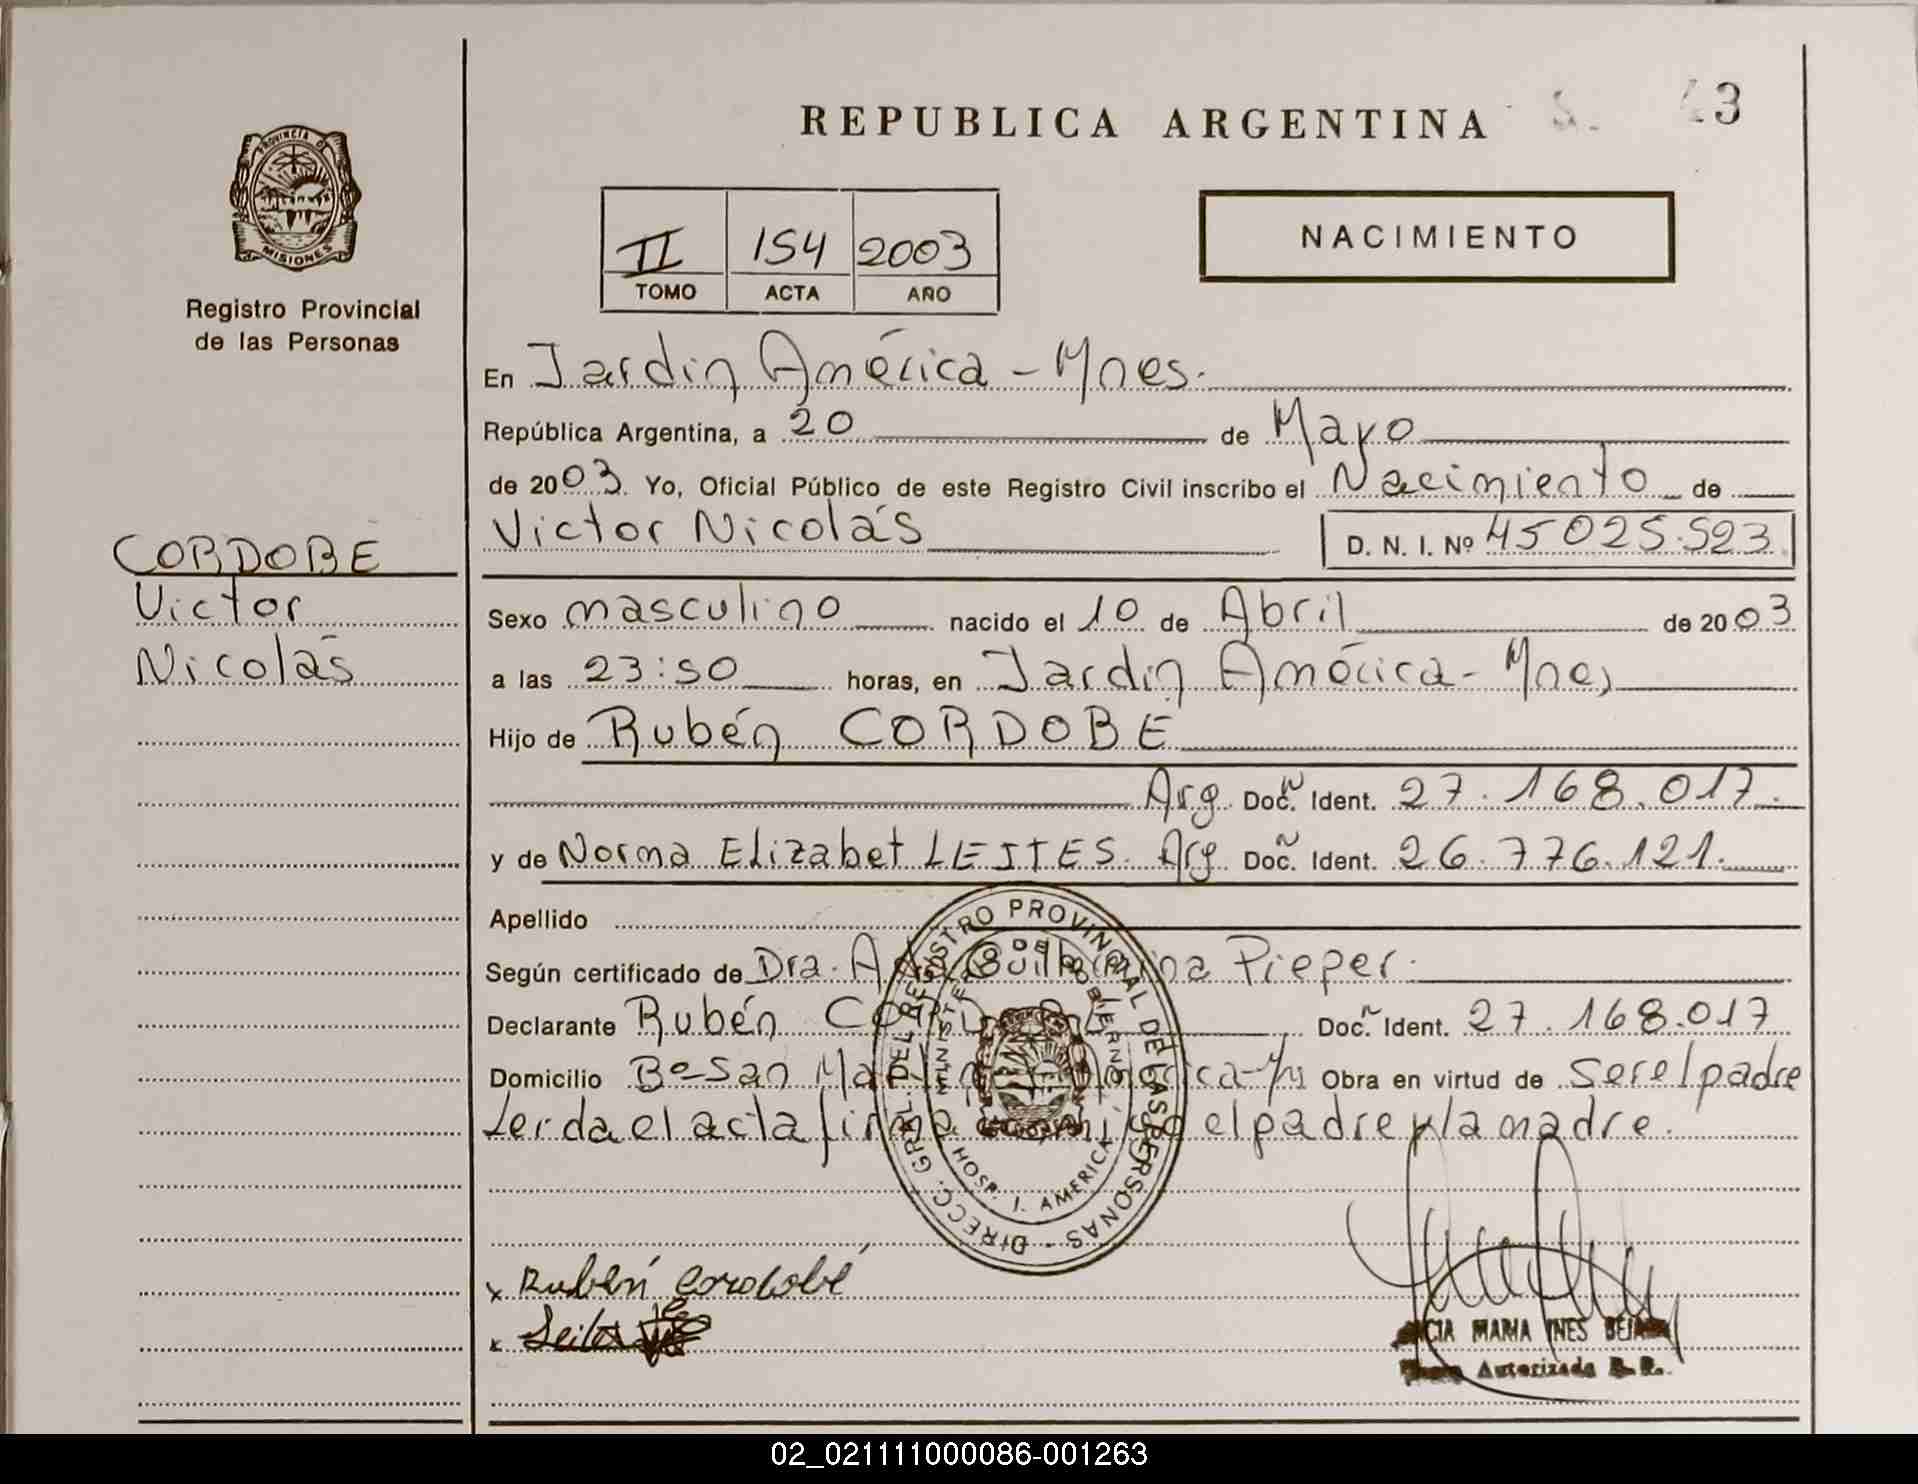 REPUBLICA ARGENTINA
3
PROVINCIA D
MISIONES
Registro Provincial
de las Personas
II 154 2003
TOMO ACTA AÑO
NACIMIENTO
En Jardin América - Mnes.
República Argentina, a 20 de Mayo
de 2003. Yo, Oficial Público de este Registro Civil inscribo el Nacimiento de
Victor Nicolás D. N. I. Nº 45025.523
CORDOBE
Victor
Nicolás
Sexo masculino nacido el 10 de Abril de 2003
a las 23:50 horas, en Jardin América - Mnes
Hijo de Rubén CORDOBE
Arg Doc. Ident. 27.168.017.
y de Norma Elizabet LEITES. Arg Doc. Ident. 26.776.121.
Apellido
Según certificado de Dra. Pieper.
Declarante Rubén Doc. Ident. 27.168.017
Domicilio Bº San Obra en virtud de ser el padre
Leida el acta el padre y la madre.
DIRECC. GRAL. DEL REGISTRO PROVINCIAL DE LAS PERSONAS -
MINISTERIO DE GOBIERNO
HOSP. J. AMERICA
x Rubén Cordobé
x Leites
MARIA INES
Autorizada
02_021111000086-001263